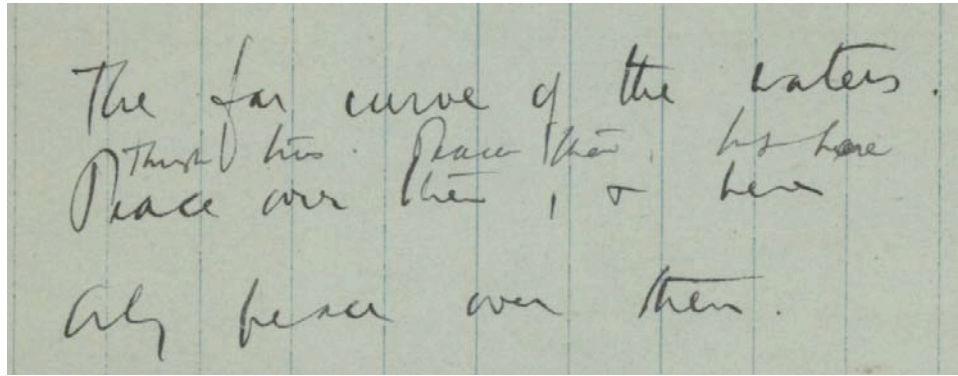 The far curve of the waters.
Through this. Peace there, but here
Peace over there, & here
Only peace over there.